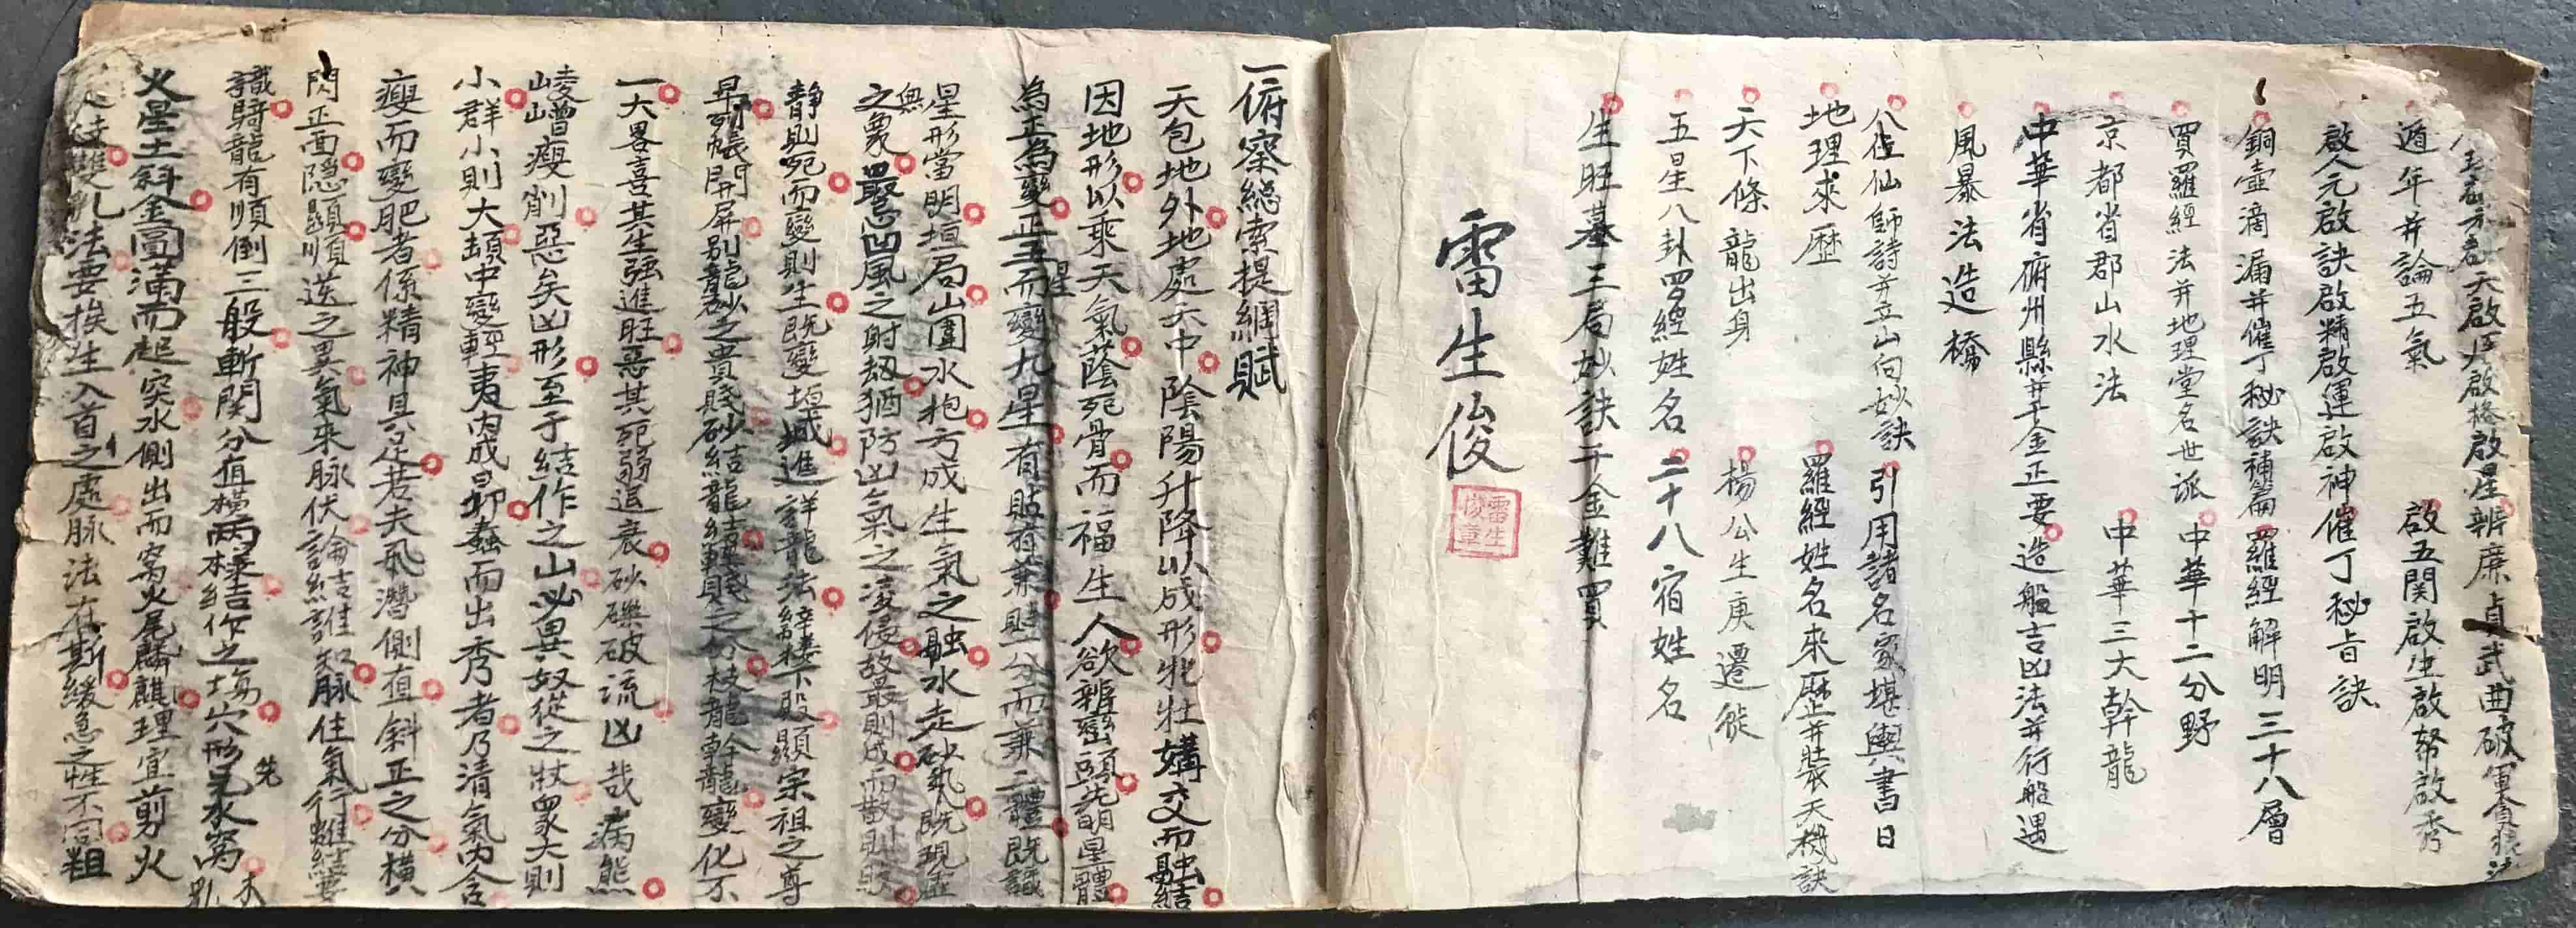 天啟人啟格啟星辨廉貞武曲破軍貪狼法
遁年并論五氣 啟五関啟生啟帑啟秀
啟人元啟訣啟精啟運啟神催丁秘旨訣
銅壺滴漏并催丁秘訣補篇 羅經解明三十八層
買羅經法并地理堂名世派 中華十二分野
京都省郡山水法 中華三大幹龍
中華省府州縣并千金正要 造船吉凶法并行船遇
風暴法造橋
八位仙師詩并立山向妙訣 引用諸名家堪輿書日
地理求歷 羅經姓名來歷并裝天機訣
天下條龍出身 楊公生庚遷徙
五星八卦四經姓名 二十八宿姓名
生旺墓三局妙訣千金難買
雷生俊
雷生俊章
一俯察總索提綱賦
天包地外地處天中陰陽升降以成形牝牡媾交而融結
因地形以乘天氣蔭死骨而福生人欲辨巒頭先明星體
為正為變正五星而變九星有貼脊兼貼分而兼二體既識
星形當明垣局山圍水抱方成生氣之融水走砂飛既現虛無
之象最忌凹風之射劫猶防凶氣之凌侵故聚則成而散則敗
静則死而變則生既變垣城進詳龍法辞樓下殿顯宗祖之尊
帳開屏別龍砂之貴賤砂結龍結轉賤之分枝龍幹龍變化不
一大畧喜其生强進旺惡其死弱退衰砂礫破流凶哉病態
崚嶒瘦削惡矣凶形至于結作之山必異奴從之狀衆大則
小群小則大頑中變輕夷内成昴蠢而出秀者乃清氣内含
瘦而變肥者係精神具足若夫飛潛側直斜正之分橫
閃正面隱顯順逆之異氣來脉伏論結誰知脉住氣行難結要
識騎龍有順倒三般斬関分直橫兩樣結作之塲穴形先見水窩木乳
火星土斜金圓滿而起突水側出而窩火尾麟麒理宜剪火
雙乳法要挨生入首之處脉法在斯緩急之性不同粗